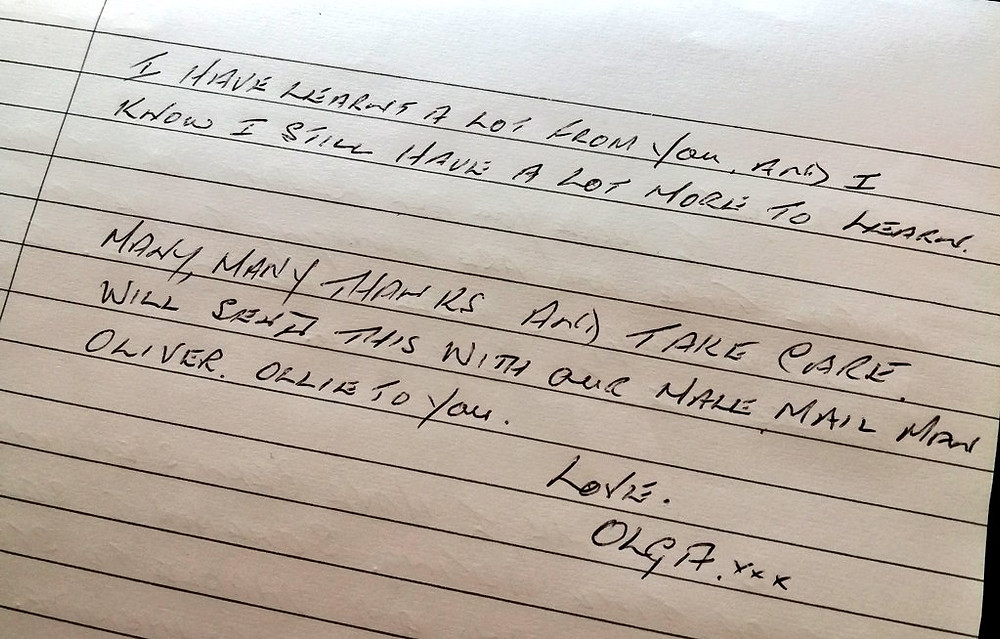 I HAVE LEARNT A LOT FROM YOU, AND I
KNOW I STILL HAVE A LOT MORE TO LEARN.
MANY, MANY THANKS AND TAKE CARE.
WILL SEND THIS WITH OUR MALE MAIL MAN
OLIVER. OLLIE TO YOU.
LOVE.
OLGA.xxx